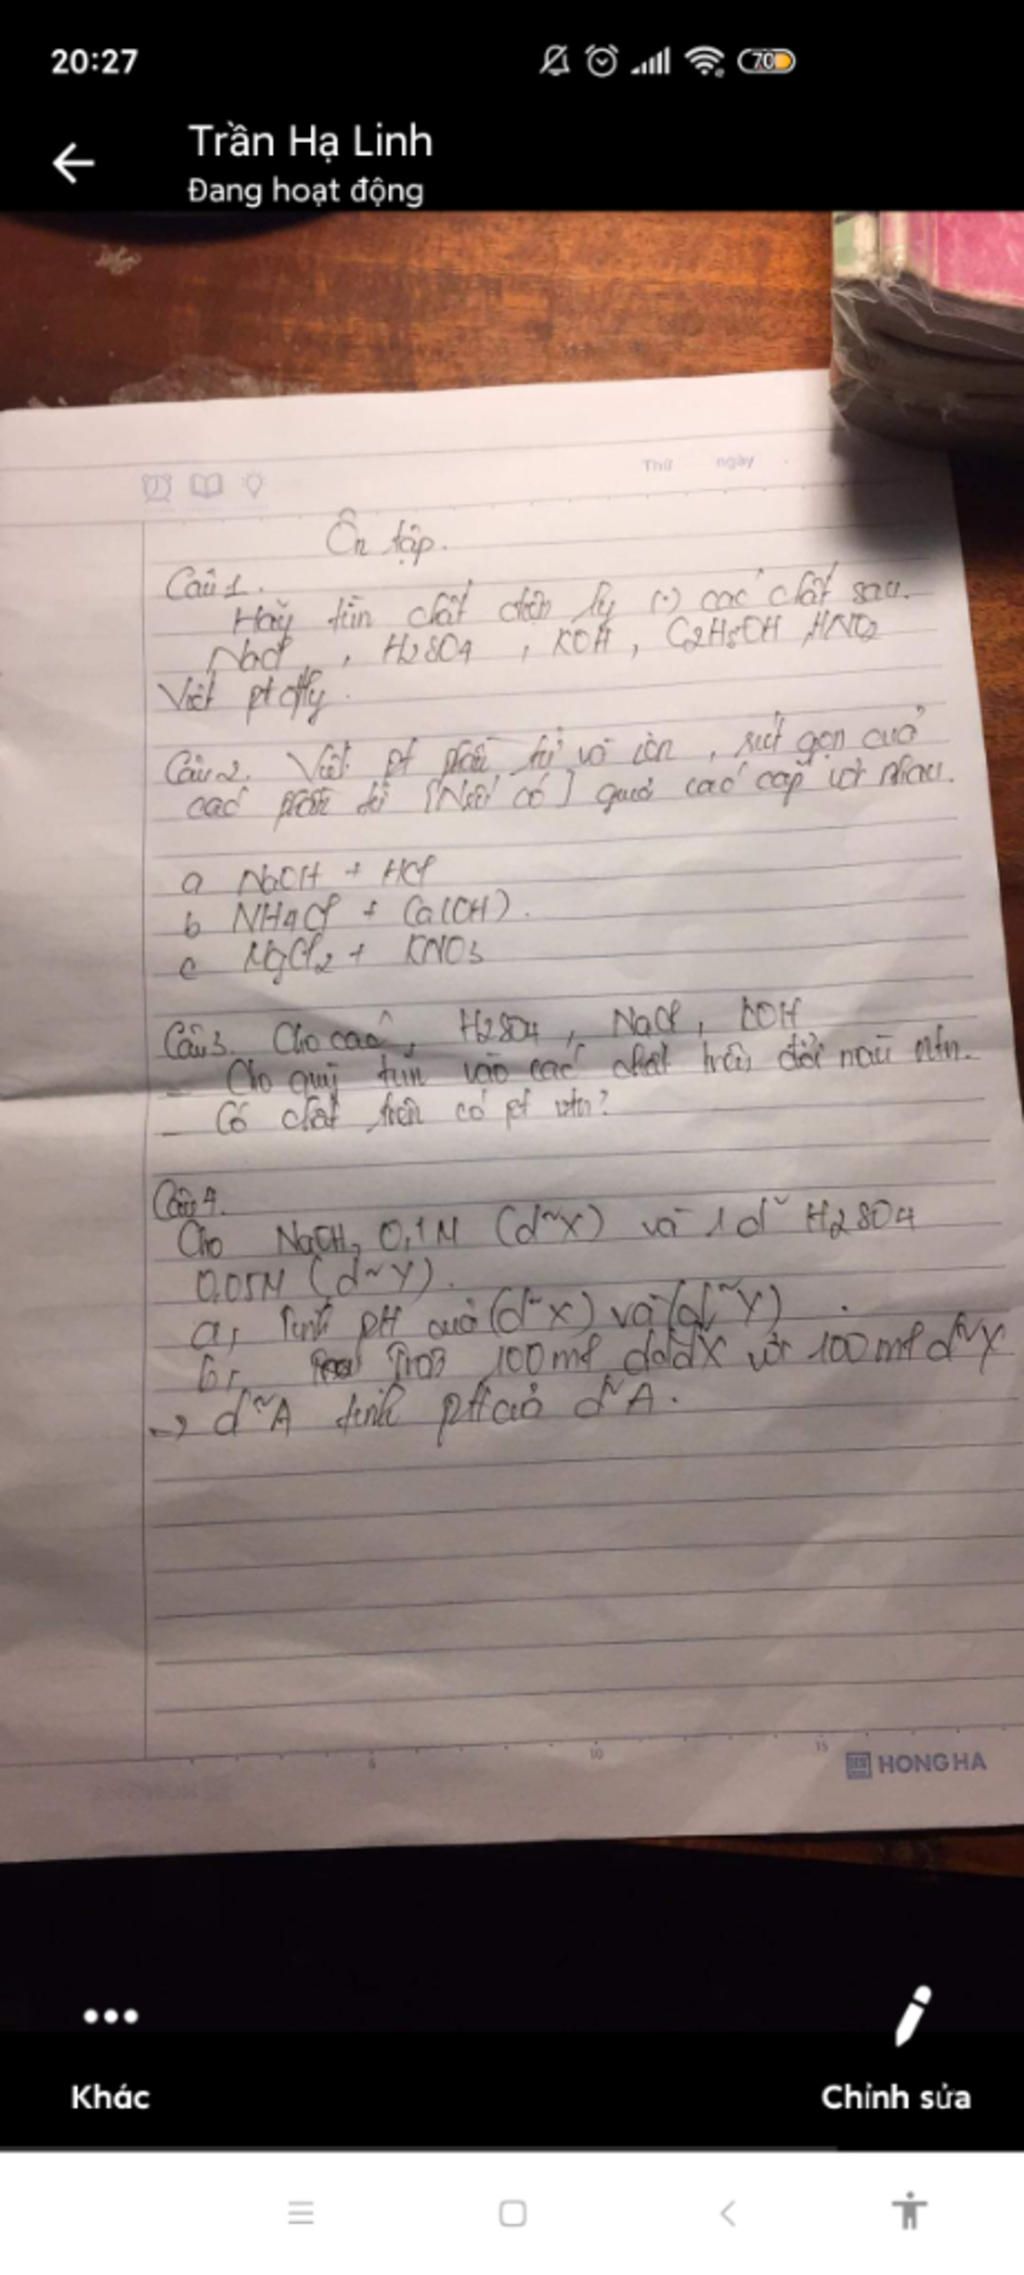 20:27
70
Trần Hạ Linh
Đang hoạt động
Thứ ngày
Ôn tập.
Câu 1.
Hãy tìm chất điện ly (.) các chất sau.
NaCl, H2SO4, KOH, C2H5OH, HNO2
Viết pt đly.
Câu 2. Viết pt phân tử và ion, rút gọn của
các phân tử [Nếu có] giữa các cặp
a NaOH + HCl
b NH4Cl + Ca(OH).
c MgCl2 + KNO3
Câu 3. Cho các, H2SO4, NaCl, KOH
- Cho quỳ tím vào các chất trên đổi màu ntn.
- Có chất trên có pt ntn?
Câu 4.
Cho NaOH, 0,1M (d~X) và 1 d~ H2SO4
0,05M (d~Y).
a, Tính pH của (d~X) và (d~Y).
b, Trộn 100ml với 100ml d~Y
-> d~A tính pH của d~A.
5 10 15
HONG HA
Khác
Chỉnh sửa